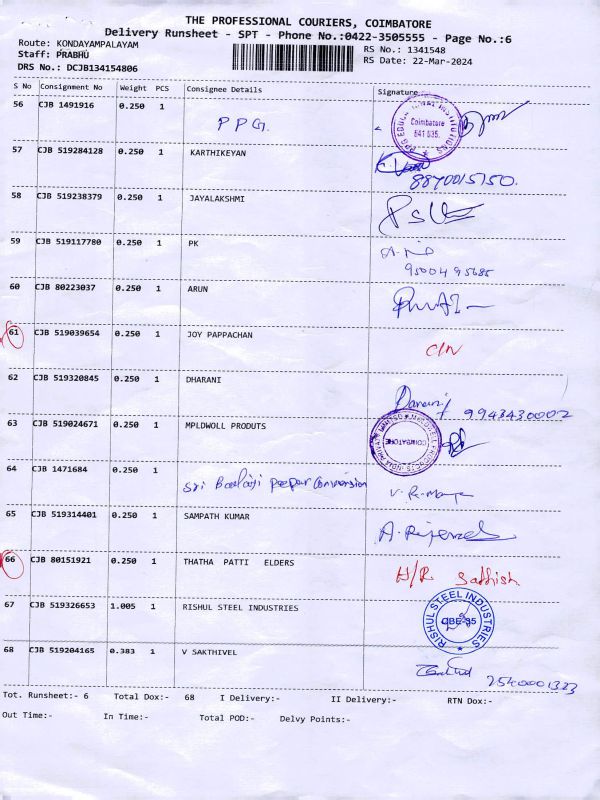 THE PROFESSIONAL COURIERS, COIMBATORE
Delivery Runsheet - SPT - Phone No.:0422-3505555 - Page No.:6
Route: KONDAYAMPALAYAM
Staff: PRABHU
DRS No.: DCJB134154806
RS No.: 1341548
RS Date: 22-Mar-2024
S No Consignment No Weight PCS Consignee Details Signature
56 CJB 1491916 0.250 1 PPG
Coimbatore 641 035.
57 CJB 519284128 0.250 1 KARTHIKEYAN
8870015750.
58 CJB 519238379 0.250 1 JAYALAKSHMI
59 CJB 519117780 0.250 1 PK
9500495685
60 CJB 80223037 0.250 1 ARUN
61 CJB 519039654 0.250 1 JOY PAPPACHAN
62 CJB 519320845 0.250 1 DHARANI
9943430002
63 CJB 519024671 0.250 1 MPLDWOLL PRODUTS
COIMBATORE
64 CJB 1471684 0.250 1 Sri Balaji peeper Conversion
65 CJB 519314401 0.250 1 SAMPATH KUMAR
66 CJB 80151921 0.250 1 THATHA PATTI ELDERS H/R Sathish
67 CJB 519326653 1.005 1 RISHUL STEEL INDUSTRIES
RISHUL STEEL INDUSTRIES CBE-35
68 CJB 519204165 0.383 1 V SAKTHIVEL
Tot. Runsheet:- 6 Total Dox:- 68 I Delivery:- II Delivery:- RTN Dox:-
Out Time:- In Time:- Total POD:- Delvy Points:-